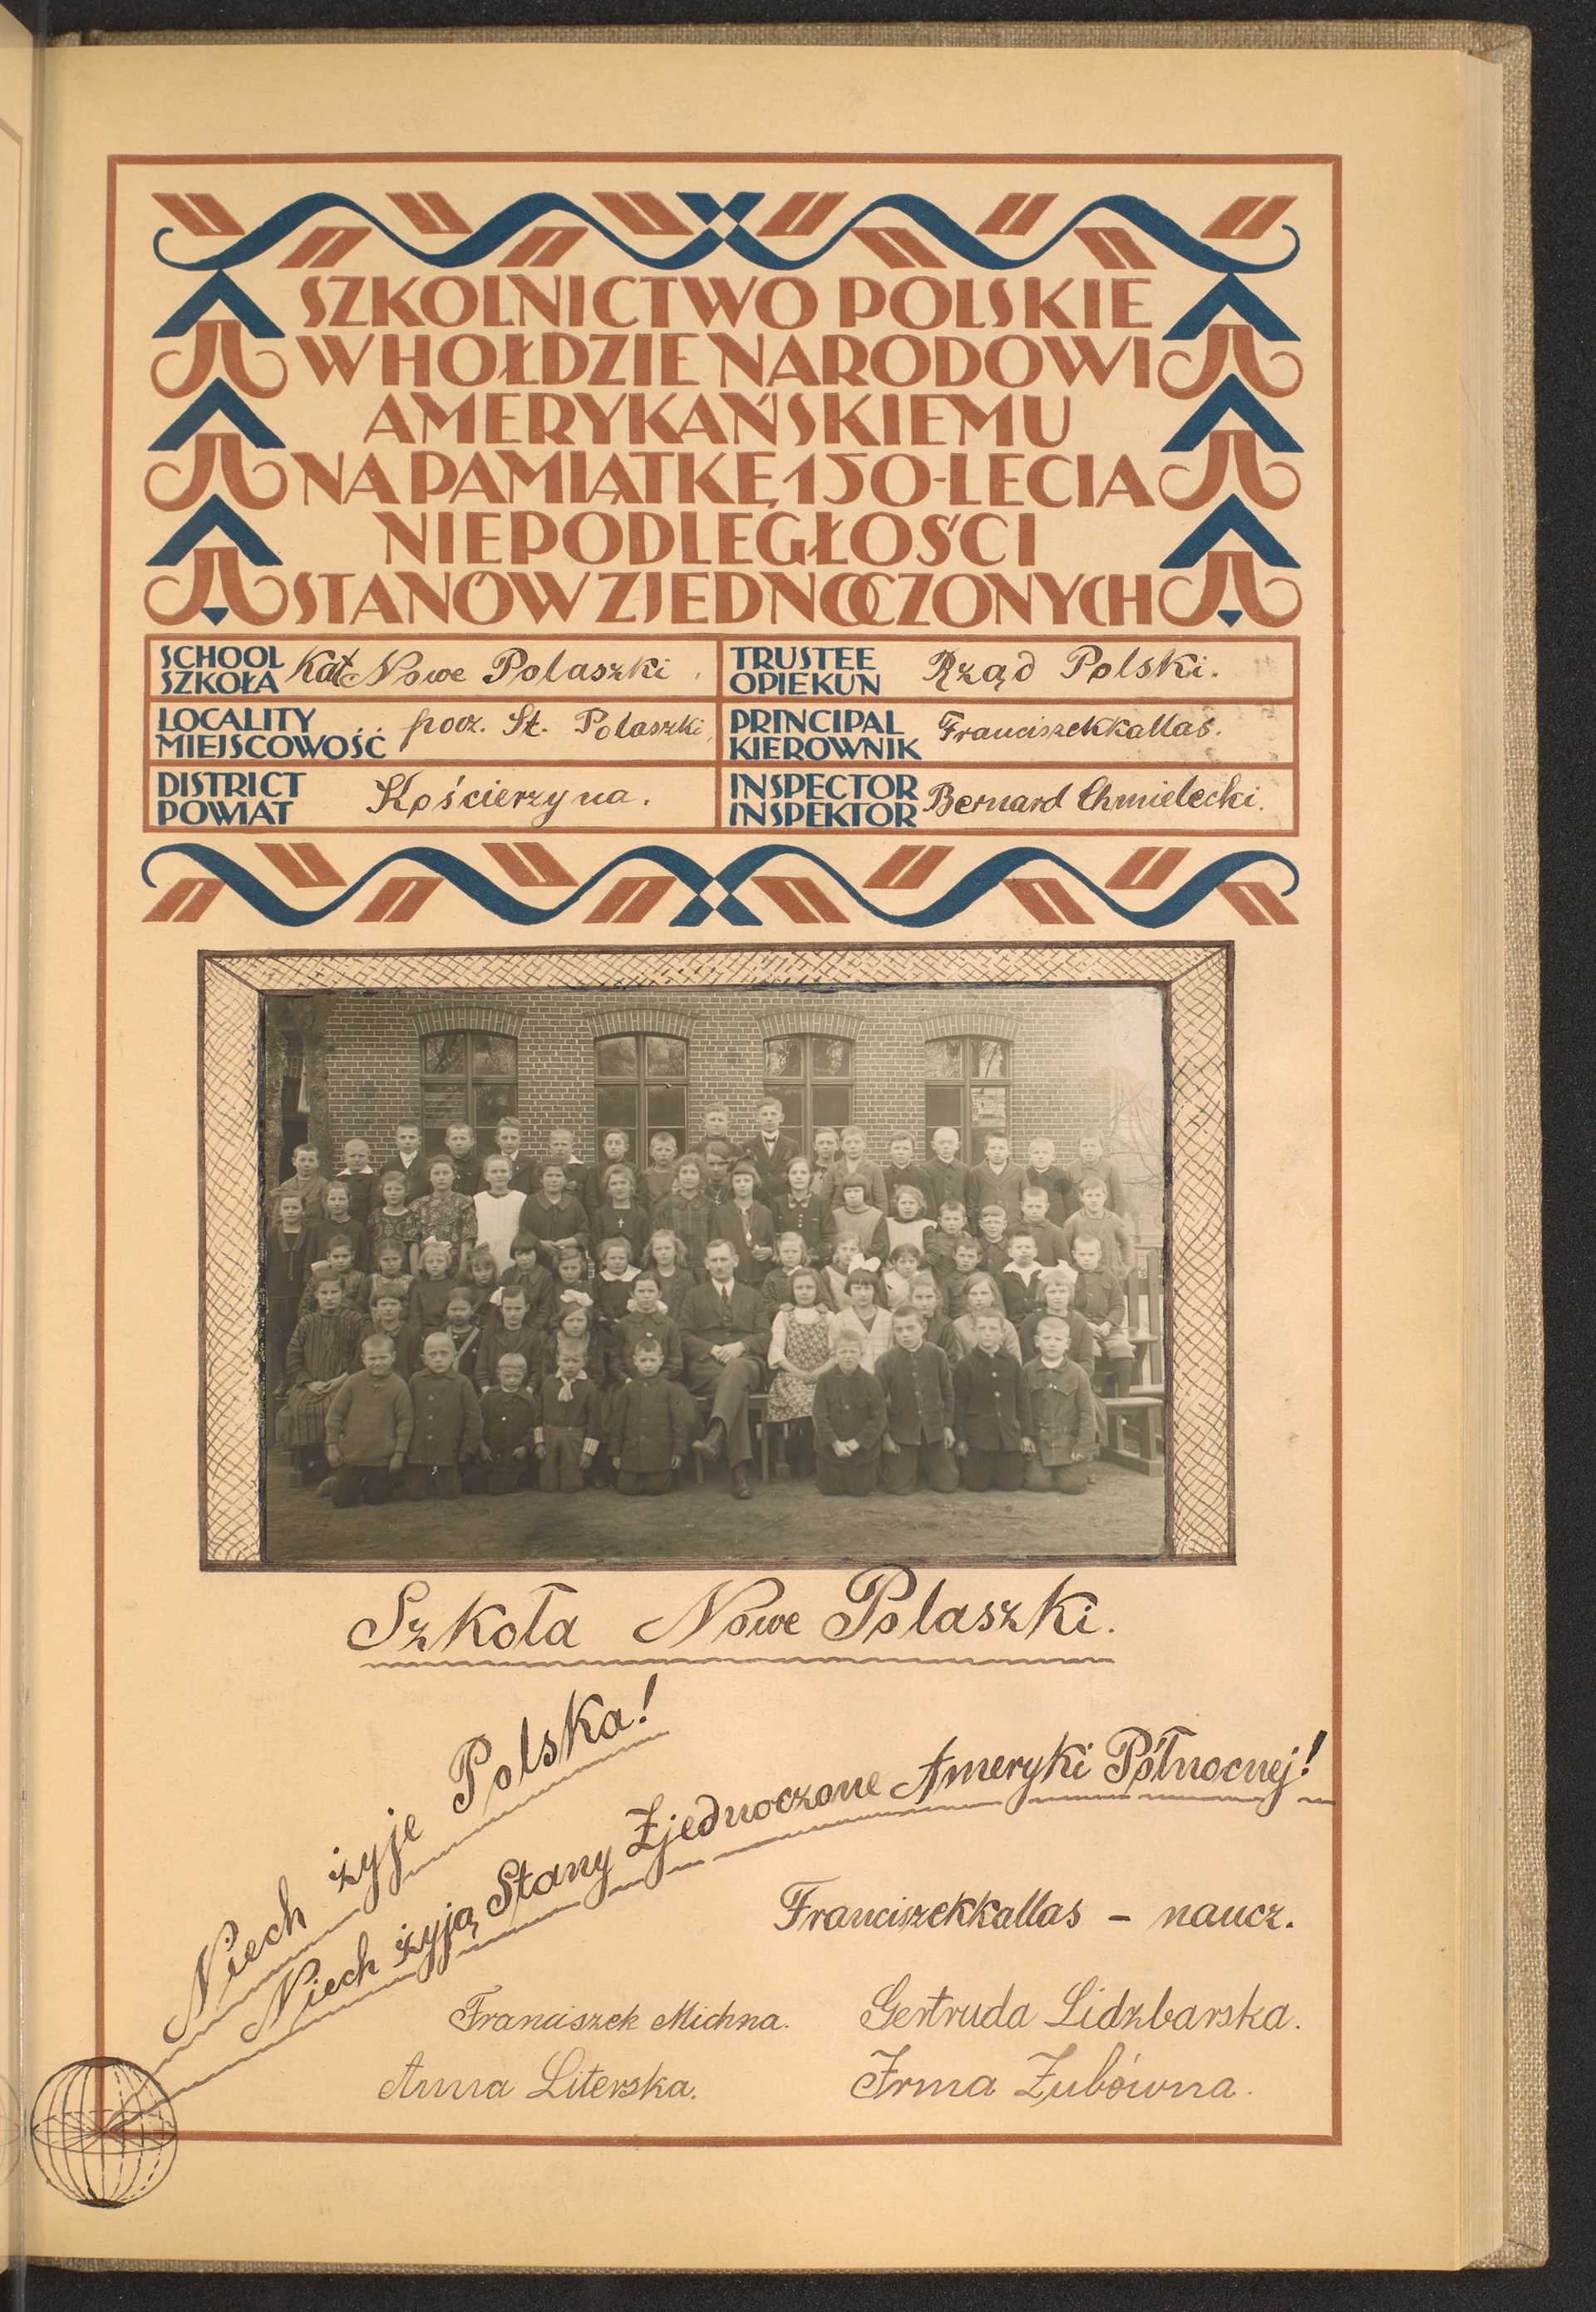 SZKOLNICTWO POLSKIE
W HOŁDZIE NARODOWI
AMERYKAŃSKIEMU
NA PAMIĄTKĘ 150-LECIA
NIEPODLEGŁOŚCI
STANÓW ZJEDNOCZONYCH
SCHOOL
SZKOŁA Kat Nowe Polaszki
TRUSTEE
OPIEKUN Rząd Polski.
LOCALITY
MIEJSCOWOŚĆ pocz. St. Polaszki
PRINCIPAL
KIEROWNIK Franciszek Kallas.
DISTRICT
POWIAT Kościerzyna.
INSPECTOR
INSPEKTOR Bernard Chmielecki.
Szkoła Nowe Polaszki.
Niech żyje Polska!
Niech żyją Stany Zjednoczone Ameryki Północnej!
Franciszek Kallas – naucz.
Franciszek Michna. Gertruda Lidzbarska.
Anna Literska. Irma Zubówna.